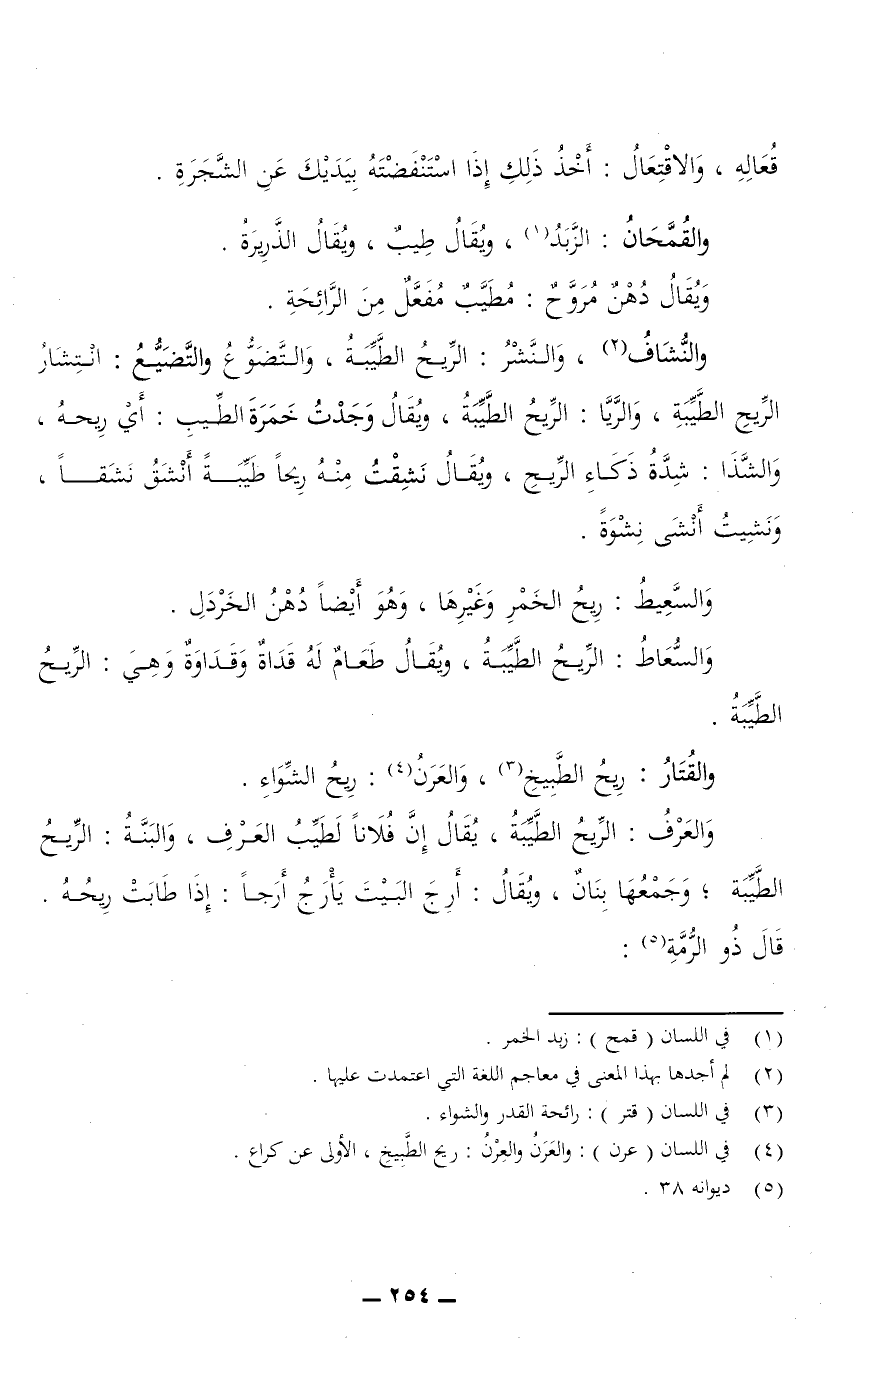 قُعَالِهِ ، وَالاقْتِعَالُ : أَخْذُ ذَلِكِ إِذَا اسْتَنْفَضْتَهُ بِيَدَيْكَ عَنِ الشَّجَرَةِ .
والقُمَّحَانُ : الزَّبَدُ(١) ، ويُقَالُ طِيبٌ ، ويُقَالُ الذَّرِيرَةُ .
وَيُقَالُ دُهْنٌ مُرَوَّحٌ : مُطَيَّبٌ مُفَعَّلٌ مِنَ الرَّائِحَةِ .
والنُّشَافُ(٢) ، وَالنَّشْرُ : الرِّيحُ الطَّيِّبَةُ ، وَالتَّضَوُّعُ والتَّضَيُّعُ : انْتِشَارُ
الرِّيحِ الطَّيِّبَةِ ، وَالرَّيَّا : الرِّيحُ الطَّيِّبَةُ ، ويُقَالُ وَجَدْتُ خَمَرَةَ الطِّيبِ : أَيْ رِيحهُ ،
وَالشَّذَا : شِدَّةُ ذَكَاءِ الرِّيحِ ، ويُقَالُ نَشِقْتُ مِنْهُ رِيحاً طَيِّبَةً أَنْشَقُ نَشَقاً ،
وَنَشِيتُ أَنْشَى نِشْوَةً .
وَالسَّعِيطُ : رِيحُ الخَمْرِ وَغَيْرِهَا ، وَهُوَ أَيْضاً دُهْنُ الخَرْدَلِ .
وَالسُّعَاطُ : الرِّيحُ الطَّيِّبَةُ ، ويُقَالُ طَعَامٌ لَهُ قَدَاةٌ وَقَدَاوَةٌ وَهِيَ : الرِّيحُ
الطَّيِّبَةُ .
والقُتَارُ : رِيحُ الطَّبِيخِ(٣) ، وَالعَرَنُ(٤) : رِيحُ الشِّوَاءِ .
وَالعَرْفُ : الرِّيحُ الطَّيِّبَةُ ، يُقَالُ إِنَّ فُلَاناً لَطَيِّبُ العَرْفِ ، وَالبَنَّةُ : الرِّيحُ
الطَّيِّبَة ؛ وَجَمْعُهَا بِنَانٌ ، ويُقَالُ : أَرِجَ البَيْتَ يَأْرَجُ أَرَجاً : إِذَا طَابَتْ رِيحُهُ .
قَالَ ذُو الرُّمَّةِ(٥) :
(١) في اللسان ( قمح ) : زبد الخمر .
(٢) لم أجدها بهذا المعنى في معاجم اللغة التي اعتمدت عليها .
(٣) في اللسان ( قتر ) : رائحة القدر والشواء .
(٤) في اللسان ( عرن ) : والعَرَنُ والعِرْنُ : ريح الطَّبِيخِ ، الأولى عن كراع .
(٥) ديوانه ٣٨ .
— ٢٥٤ —